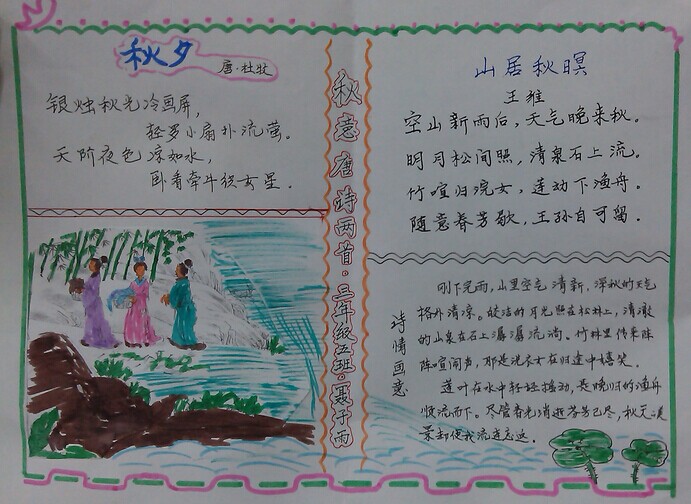 秋夕
唐·杜牧
银烛秋光冷画屏,
轻罗小扇扑流萤。
天阶夜色凉如水,
卧看牵牛织女星.
秋意唐诗两首·三年级五班·聂子雨
山居秋暝
王维
空山新雨后,天气晚来秋。
明月松间照,清泉石上流。
竹喧归浣女,莲动下渔舟。
随意春芳歇,王孙自可留。
诗情画意
刚下完雨,山里空气清新,深秋的天气
格外清凉。皎洁的月光照在松林上,清澈
的山泉在石上潺潺流淌。竹林里传来阵
阵喧闹声,那是洗衣女在归途中嬉笑。
莲叶在水中轻轻摇动,是晚归的渔舟
顺流而下。尽管春光消逝芳芳已尽,秋天美
景却使我流连忘返。